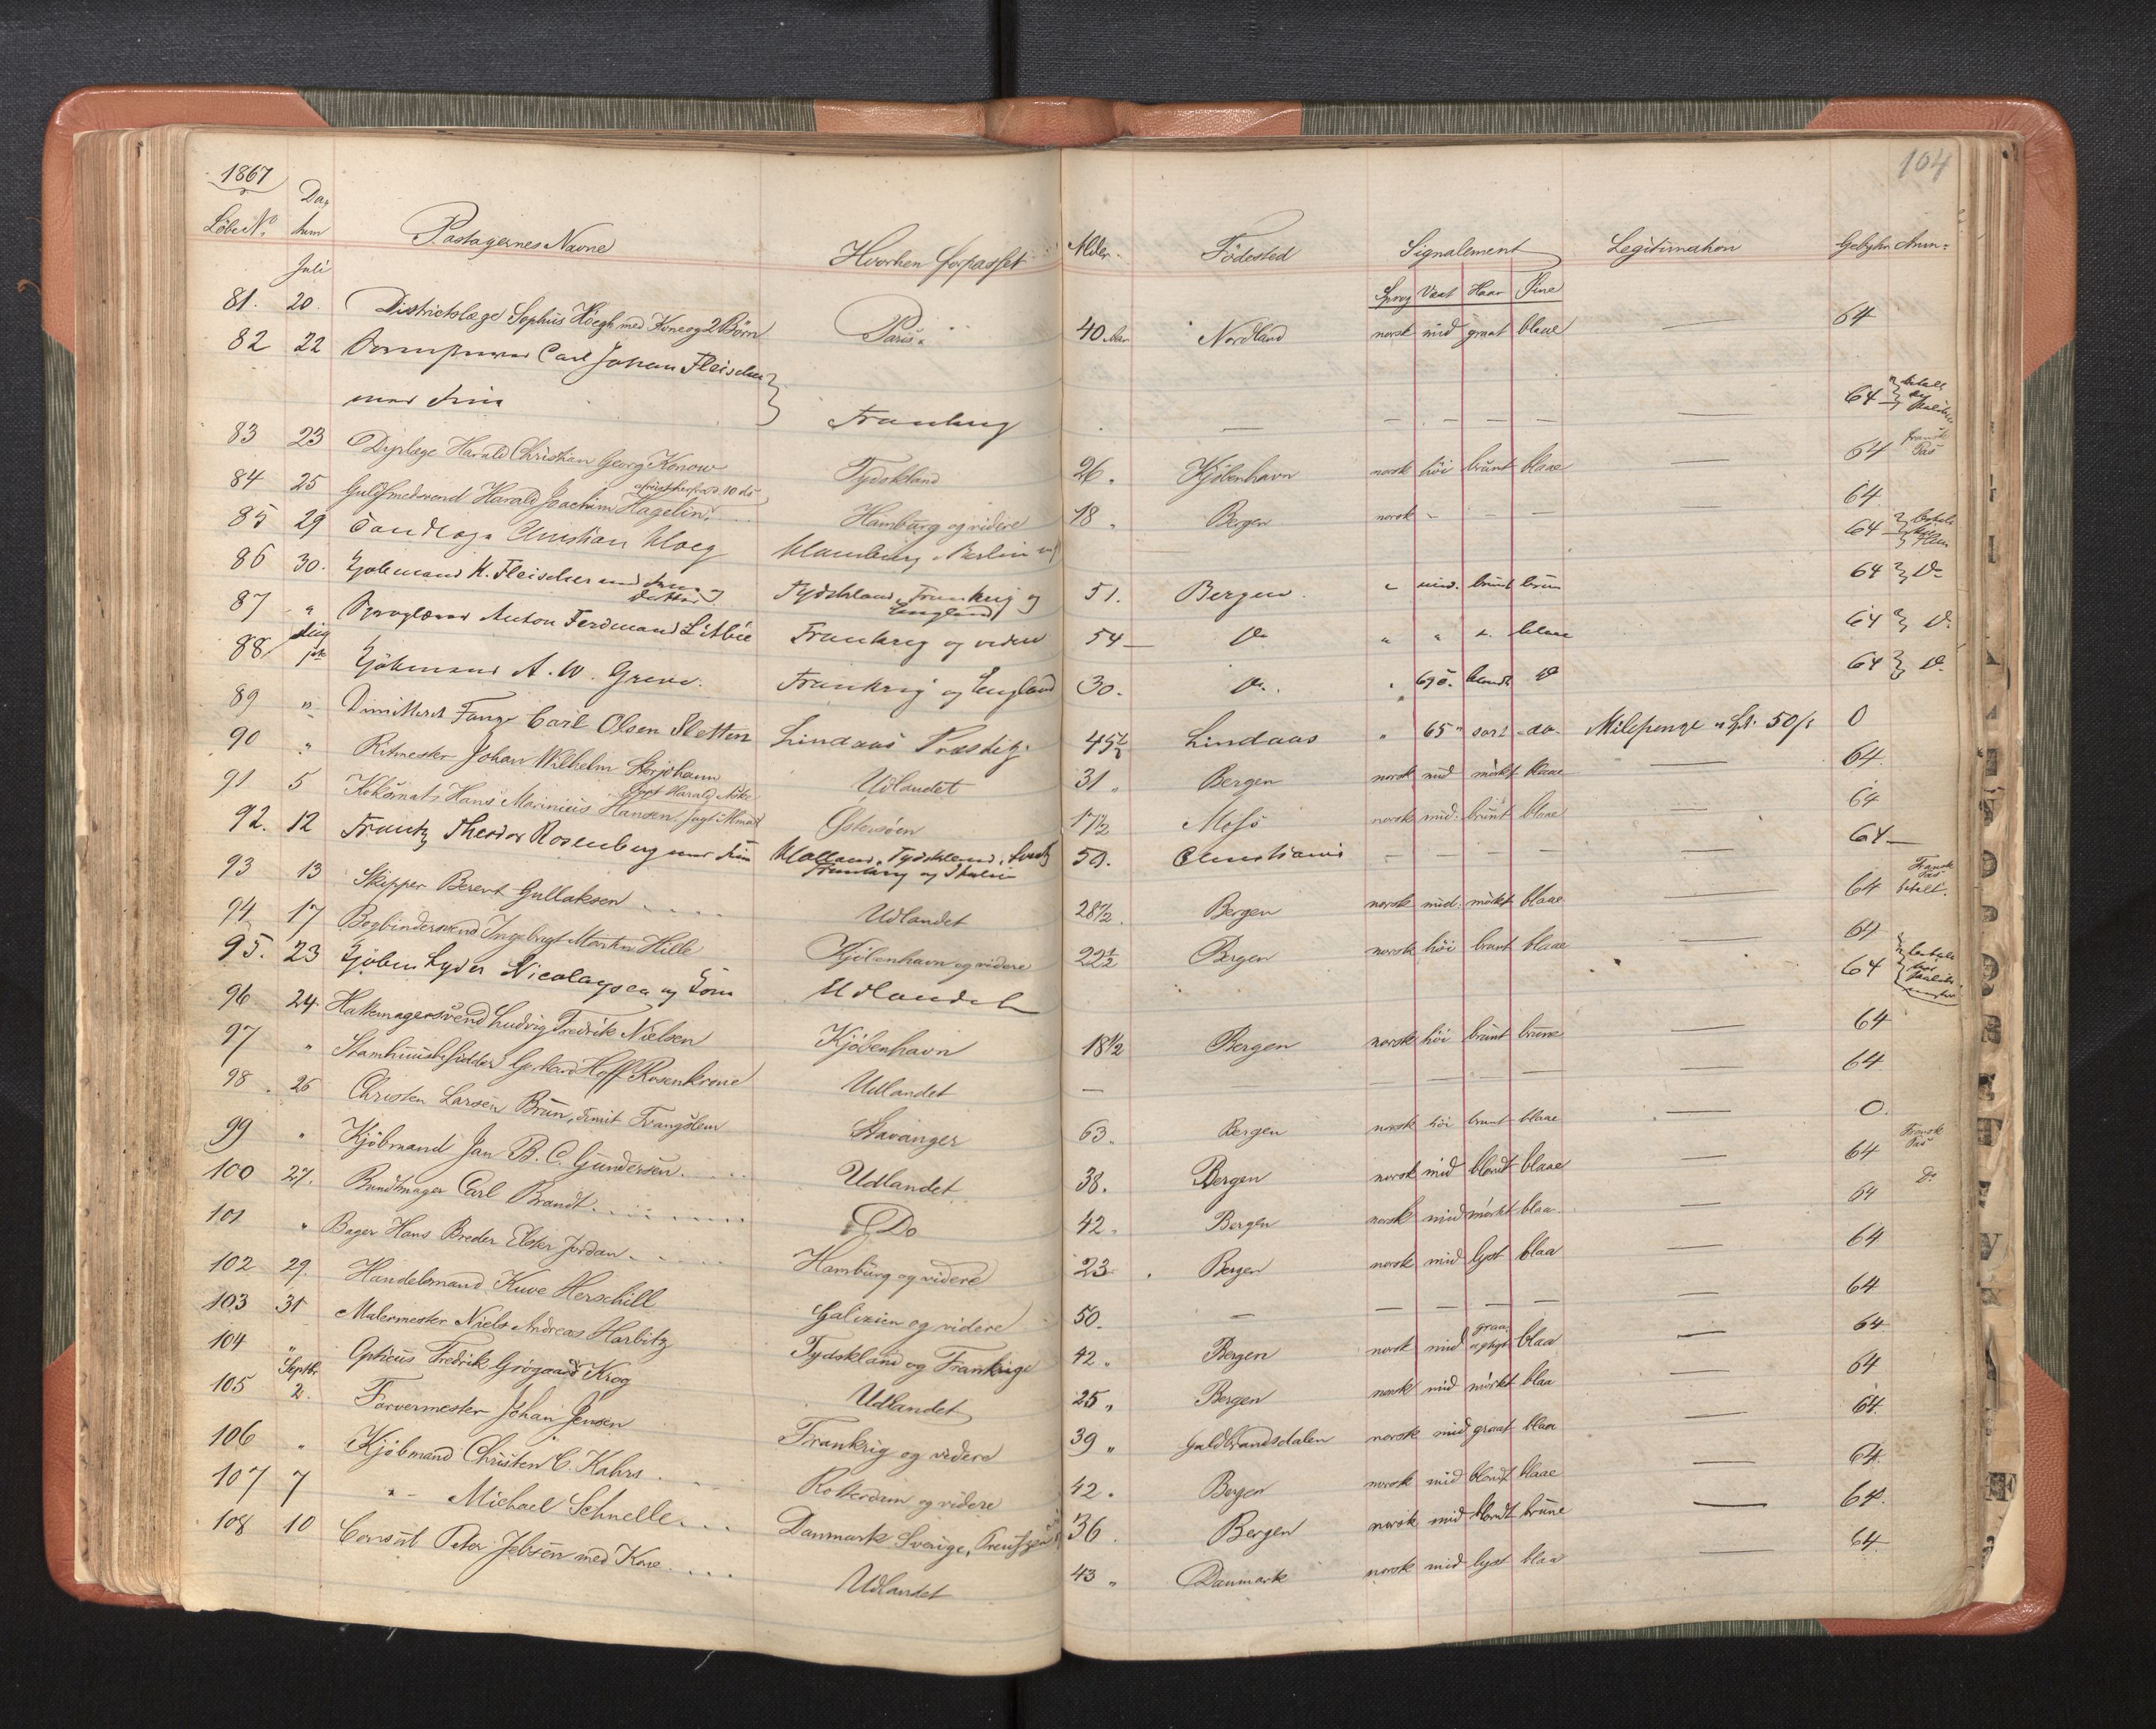 1867
104
Løbe No. Da- tum Pastagernes Navne Hvorhen forpasset Alder. Födested Signalement Legitimation Gebyhr Anm:
Juli Sprog Vaxt Haar Öine
81. 20. Districtslæge Sophus Höegh med Kone og 2 Börn Paris 40 Aar Nordland norsk mid graat blaae — 64
82 22 Carl Johan Fleischer
med Frue Frankrig — — — — — — 64
83 23 Dyrlæge Harald Christian Georg Konow Tydskland 26. Kjöbenhavn norsk höi brunt blaae — 64 fransk Pas
84 25 Guldsmedsvend Harald Joachim Hagelin Hamburg og videre 18 " Bergen norsk - — — 64
85 29 Tandlæge Christian Kloeg Hamburg, Berlin 64
86 30. Kjöbmand K. Fleischer med Frue og Datter Tydskland, Frankrig og England 51. Bergen. " mid. brunt brun 64 Do
87 " Sproglærer Anton Ferdinand Frankrig og videre 54 — Do " " " blaae 64 Do
88 Aug 1ste Kjöbmand A. W. Greve. Frankrig og England 30. Do. " blondt Do 64 Do
89 " Dimitteret Fange Carl Olsen Sletten Lindaas Præstegj. 45½ Lindaas " 65" sort do. Milepenge 0
90 " Ritmester Johan Wilhelm Storjohann Udlandet 31 " Bergen norsk mid mörkt blaae — 64
91 5 Koksmat Hans Marinius Hansen, Östersöen 17½ norsk mid. brunt blaae — 64
92. 12 Frantz Theodor Rosenberg med Frue Holland, Tydskland, Frankrig og Italien 50. Christiania — — — — — 64 —
93 13 Skipper Berent Gullaksen Udlandet 28½. Bergen norsk mid. mörkt blaae — 64 Fransk Pas betalt.
94 17 Bogbindersvend Ingebrigt Martin Hille Kjöbenhavn og videre 22½ Bergen norsk höi brunt blaae — 64
95. 23 Kjöbm Lyder Nicolaysen og Sön Udlandet 64
96 24. Hattemagersvend Ludvig Fredrik Nielsen Kjöbenhavn 18½ Bergen norsk höi brunt brune — 64
97 " Stamhuusbesidder Gerhard Hoff Rosenkrone Udlandet — — — — — — 64
98. 26 Christen Larsen Brun, dimit Stavanger 63. Bergen norsk höi brunt blaae — 0.
99 " Kjöbmand Jan B. C. Gundersen Udlandet 38. Bergen norsk mid blondt blaae — 64 Fransk Pas
100 27. Bundtmager Carl Brandt Do 42. Bergen norsk mid mörkt blaa — 64 Do
101 " Bager Hans Breder Jordan Hamburg og videre 23 Bergen norsk mid lyst blaa — 64
102 29. Handelsmand Kuve Herschill Galizien og videre 50. — — — — — — 64
103 31 Malermester Niels Andreas Harbitz Tydskland og Frankrige 42 " Bergen norsk mid graa blaa — 64
104 " Opticus Fredrik Grögaard Krog Udlandet 25 " Bergen norsk mid mörkt blaa — 64
105 Septbr 2. Farvermester Johan Jensen Frankrig og videre 39 " Guldbrandsdalen norsk mid graat blaa — 64.
106 " Kjöbmand Christen C. Kahrs Rotterdam og videre 42. Bergen norsk mid blondt blaae — 64.
107 7 " - Michael Schnelle Danmark Sverige, Preussen 36. Bergen norsk mid blondt brune — 64.
108 10 Consul Peter Jebsen med Kone Udlandet 43 " Danmark norsk mid lyst blaa — 64